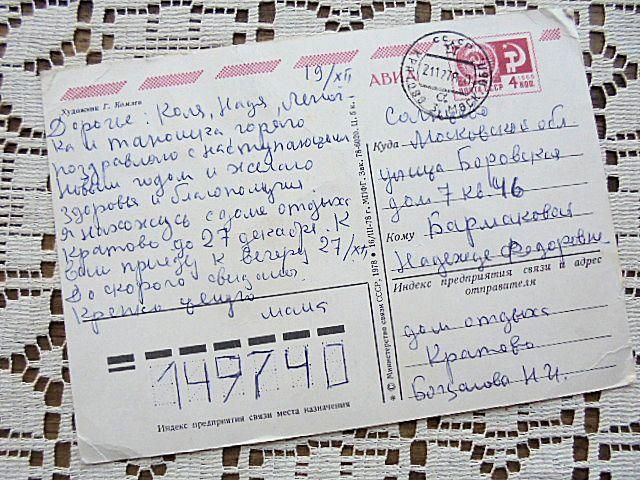 Художник Г. Комлев
19/XII
Дорогие: Коля, Надя, Леноч-
ка и танюшка горячо
поздравляю с наступающим
новым годом и желаю
здоровья и благополучия.
Я нахожусь в доме отдыха
Кратово до 27 декабря. К
вам приеду к вечеру 27/XII
До скорого свидания.
Крепко целую
мама
149740
Индекс предприятия связи места назначения
* © Министерство связи СССР, 1978 * 16/III-78 г. МПФГ. Зак. 78-6020. Ц. 5 к.
АВИА
СССР
21 12 78
1966
ПОЧТА СССР
4 коп.
Солнцево
Куда Московской обл.
улица Боровская
дом 7 кв. 46
Кому Бармаковой
Надежде Федоровне
Индекс предприятия связи и адрес
отправителя
дом отдыха
Кратово
Н. И.